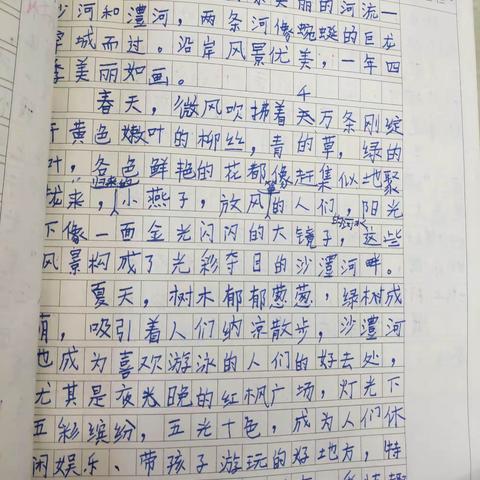 美丽的河流一
沙河和澧河，两条河像蜿蜒的巨龙
穿城而过。沿岸风景优美，一年四
季美丽如画。
春天，微风吹拂着千万条刚绽
开黄色嫩叶的柳丝，青的草，绿的
叶，各色鲜艳的花都像赶集似地聚
拢来，归来的小燕子，放风筝的人们，阳光
下像一面金光闪闪的大镜子，这些
风景构成了光彩夺目的沙澧河畔。
夏天，树木郁郁葱葱，绿树成
荫，吸引着人们纳凉散步，沙澧河
也成为喜欢游泳的人们的好去处，
尤其是夜晚的红枫广场，灯光下
五彩缤纷，五光十色，成为人们休
闲娱乐、带孩子游玩的好地方，特